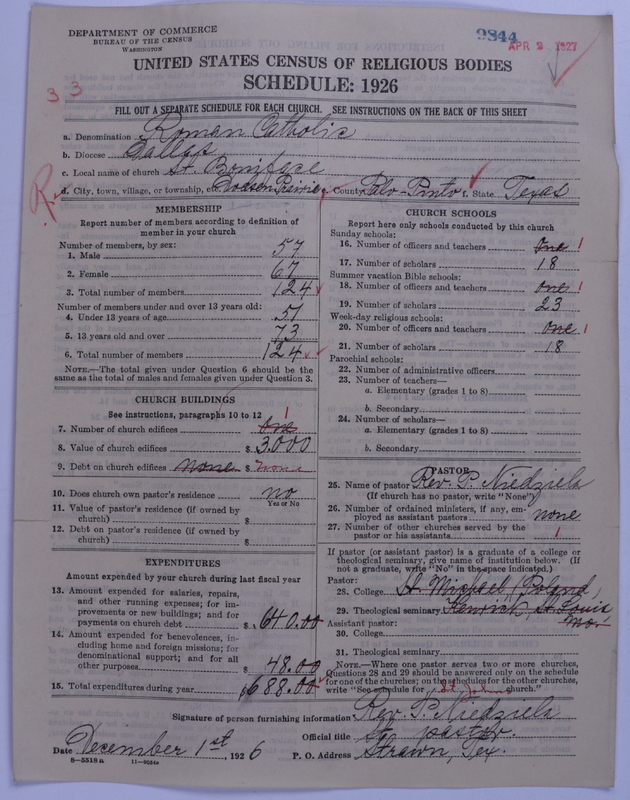 DEPARTMENT OF COMMERCE
BUREAU OF THE CENSUS
WASHINGTON
9844
APR 2 1927
UNITED STATES CENSUS OF RELIGIOUS BODIES
SCHEDULE: 1926
3 3
FILL OUT A SEPARATE SCHEDULE FOR EACH CHURCH. SEE INSTRUCTIONS ON THE BACK OF THIS SHEET
a. Denomination Roman Catholic
b. Diocese Dallas
c. Local name of church St. Boniface
R.
d. City, town, village, or township, etc. Dodson Prairie e. County Palo-Pinto f. State Texas
MEMBERSHIP
Report number of members according to definition of member in your church
Number of members, by sex:
1. Male 57
2. Female 67
3. Total number of members 124
Number of members under and over 13 years old:
4. Under 13 years of age 51
5. 13 years old and over 73
6. Total number of members 124
NOTE.—The total given under Question 6 should be the same as the total of males and females given under Question 3.
CHURCH BUILDINGS
See instructions, paragraphs 10 to 12
7. Number of church edifices one 1
8. Value of church edifices $ 3.000
9. Debt on church edifices none $ none
10. Does church own pastor's residence no
Yes or No
11. Value of pastor's residence (if owned by church) $
12. Debt on pastor's residence (if owned by church) $
EXPENDITURES
Amount expended by your church during last fiscal year
13. Amount expended for salaries, repairs, and other running expenses; for improvements or new buildings; and for payments on church debt $ 640.00
14. Amount expended for benevolences, including home and foreign missions; for denominational support; and for all other purposes $ 48.00
15. Total expenditures during year $688.00
CHURCH SCHOOLS
Report here only schools conducted by this church
Sunday schools:
16. Number of officers and teachers one 1
17. Number of scholars 18
Summer vacation Bible schools:
18. Number of officers and teachers one 1
19. Number of scholars 23
Week-day religious schools:
20. Number of officers and teachers one 1
21. Number of scholars 18
Parochial schools:
22. Number of administrative officers
23. Number of teachers—
a. Elementary (grades 1 to 8)
b. Secondary
24. Number of scholars—
a. Elementary (grades 1 to 8)
b. Secondary
PASTOR
25. Name of pastor Rev. P. Niedziela
(If church has no pastor, write "None")
26. Number of ordained ministers, if any, employed as assistant pastors none
27. Number of other churches served by the pastor or his assistants 1
If pastor (or assistant pastor) is a graduate of a college or theological seminary, give name of institution below. (If not a graduate, write "No" in the space indicated.)
Pastor:
28. College St. Michael, (Poland,
29. Theological seminary Kenrick, St. Louis Mo.
Assistant pastor:
30. College
31. Theological seminary
NOTE.—Where one pastor serves two or more churches, Questions 28 and 29 should be answered only on the schedule for one of the churches; on the schedules for the other churches, write "See schedule for St. Johns church."
Signature of person furnishing information Rev. P. Niedziela
Official title pastor.
Date December 1st, 1926 P. O. Address Strawn, Tex.
8—5518 a 11—9034a